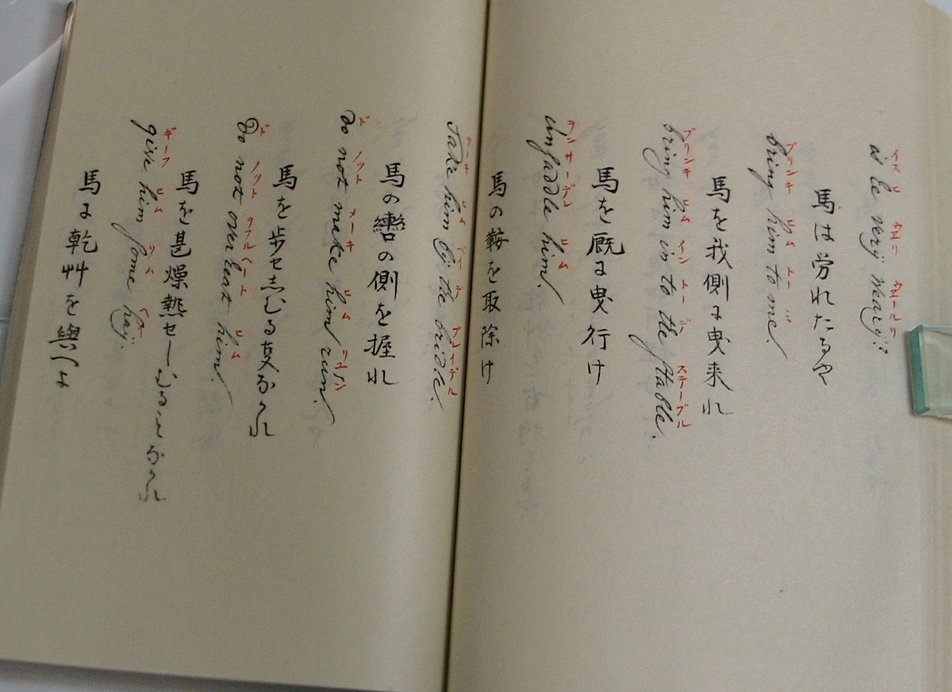 is he very weary?
馬は労れたるや
ブリンキ ヒム トー
bring him to me.
馬を我側に曳来れ
ブリンキ ヒム イン トー ステーブル
bring him in to the ſtable.
馬を厩に曳行け
ヲンサーデレ ヒム
unſaddle him.
馬の鞍を取除け
テーキ ヒム ブレイデル
take him by the bridle.
馬の轡の側を握れ
ド ノット メーキ ヒム
do not make him run.
馬を歩セしむる なかれ
ド ノット ヲフルヘート ヒム
do not overheat him.
馬を甚燥熱セしむることなかれ
ギーフ ヒム ソム ヘー
give him ſome hay.
馬に乾艸を與へよ